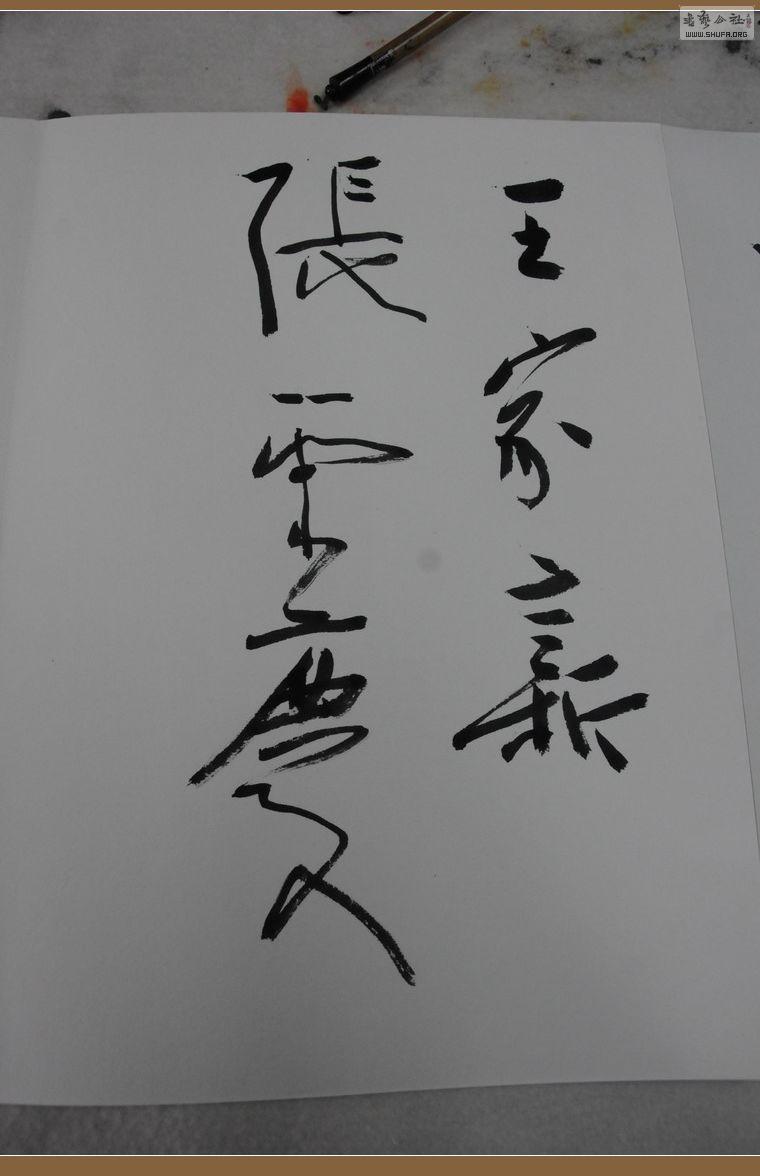 书艺公社
WWW.SHUFA.ORG
王家新
張雲慶